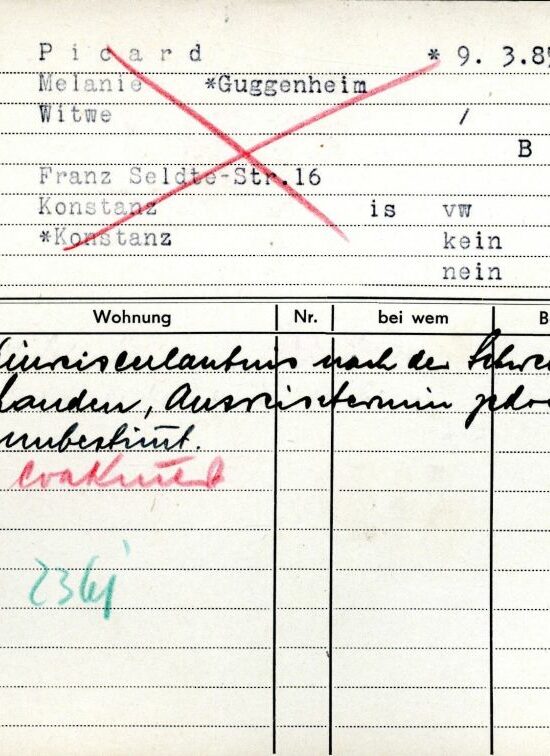 Picard * 9. 3.8
Melanie *Guggenheim
Witwe /
B
Franz Seldte-Str.16
Konstanz is vw
*Konstanz kein
nein
Wohnung Nr. bei wem B
Einreiseerlaubnis nach der Schwei
handen, Ausreisetermin jedo
unbestimt.
evakuiert